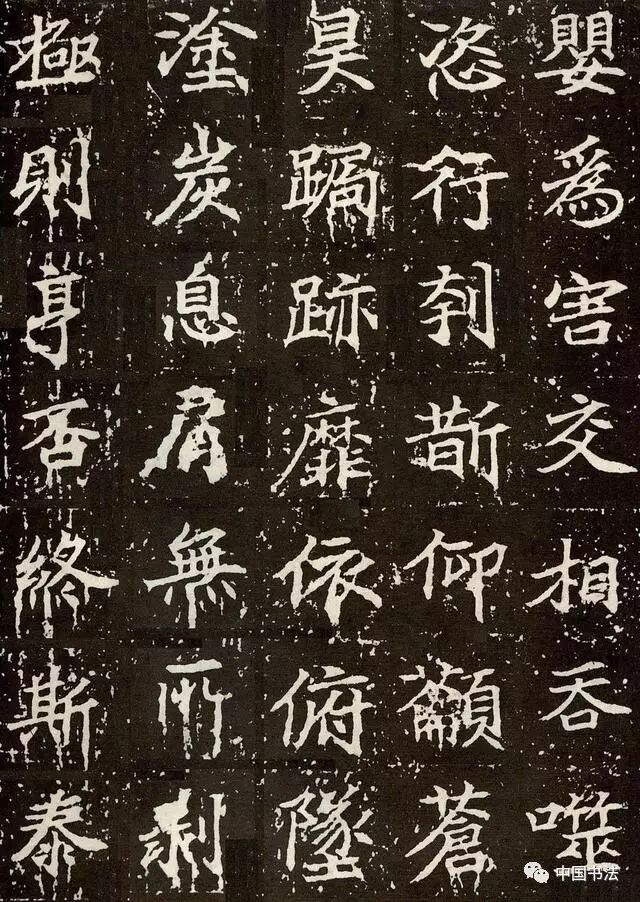 嬰爲害交相吞噬
恣行刳斮仰龥蒼
昊跼跡靡依俯墜
塗炭息肩無所剝
極則亨否終斯泰
中国书法